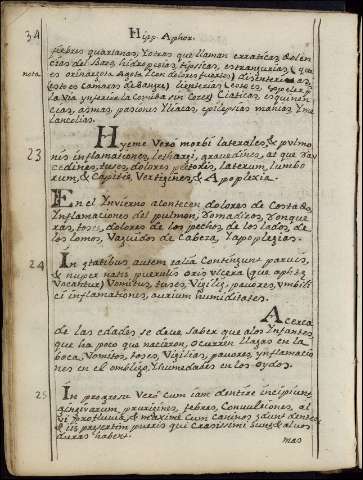 34
Hipp. Aphor.
fiebres quartanas, Yotras que llaman erraticas, dolen
cias del Bazo, hidropesias, tissicas, estrangurias, (que
nota
es orinar gota á gota con dolores fuertos) disenterias,
(esto es camaras de sangre) lienterias, (esto es, espeler p.r
la Via ynferior la Comida sin Cocer) Ciaticas, esquinen
cias, asmas, passiones Yliacas, epilepsias, manias, Yme
lancolias.
23
Hyeme Vero morbi laterales, & pulmo
nis inflamationes, lethargi, gravedines, at que rau
cedines, tuses, dolores pectoris, laterum, lumbo
rum, & Capitis, Vertigines, & Apoplexia.
En el Ynvierno acontecen dolores de Costado,
Ynflamaciones del pulmon, Yronque
ras, toses, dolores de los pechos, de los lados, de
los lomos, Vaguidos de Cabeza, Yapoplegias.
24
In ætatibus autem talia Contingunt, parvis,
& nuper natis puerulis oris ulcera (que aphtæ
Vocantur) Vomitus, tuses, Vigiliæ, pavores, umbili
ci inflamationes, aurium humiditates.
Acerca
de las edades se deve saber que alos Ynfantes,
que ha poco que nacieron, ocurren llagas en la
boca, Vomitos, toses, Vigilias, pavores, ynflamacio
nes en el ombligo, Yhumedades en los oydos.
25
In progresu Verò cum iam dentire incipiunt,
gingivarum, pruxigines, febres, Convulciones, al
vi profluvia, & maximè cum caninos edunt dentes,
& iis presertim pueris qui Crassissimi sunt, & alvos
duras habent.
mas